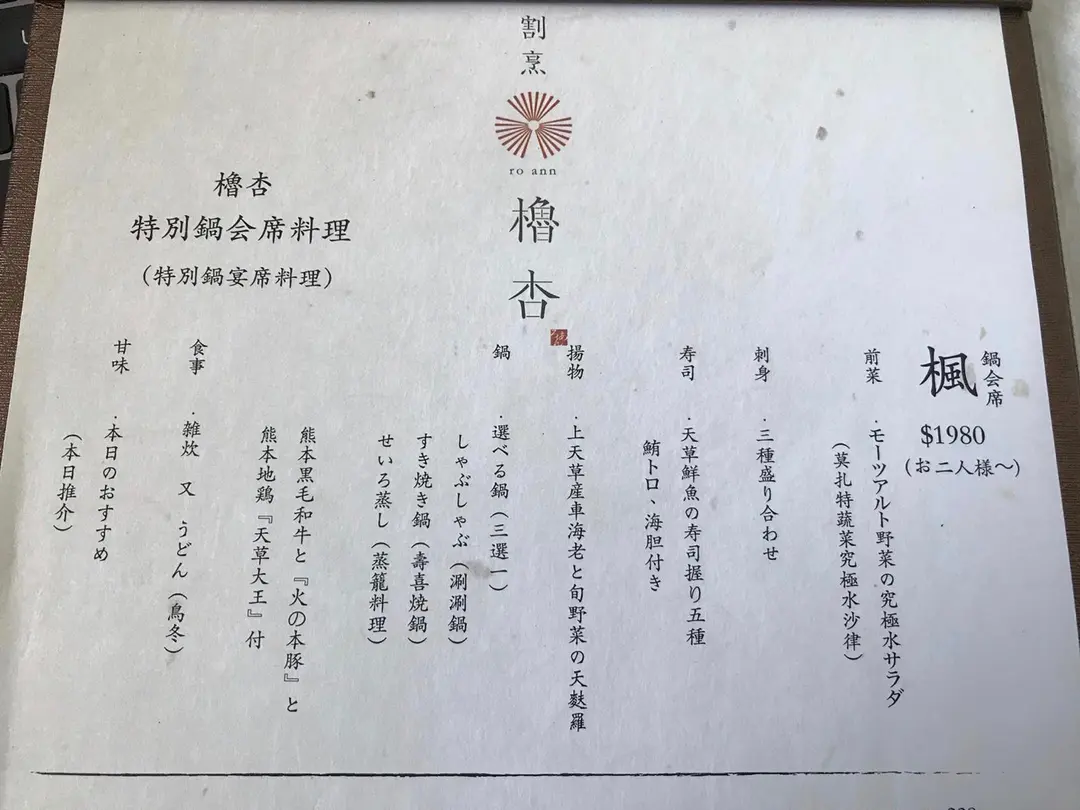 割烹
ro ann
櫓杏
櫓杏
特別鍋会席料理
（特別鍋宴席料理）
鍋会席
楓
$1980
(お二人様〜)
前菜
・モーツアルト野菜の究極水サラダ
（莫扎特蔬菜究極水沙律）
刺身
・三種盛り合わせ
寿司
・天草鮮魚の寿司握り五種
鮪トロ、海胆付き
揚物
・上天草産車海老と旬野菜の天麩羅
鍋
・選べる鍋（三選一）
しゃぶしゃぶ（涮涮鍋）
すき焼き鍋（壽喜焼鍋）
せいろ蒸し（蒸籠料理）
熊本黒毛和牛と『火の本豚』と
熊本地鶏『天草大王』付
食事
・雑炊 又 うどん（烏冬）
甘味
・本日のおすすめ
（本日推介）